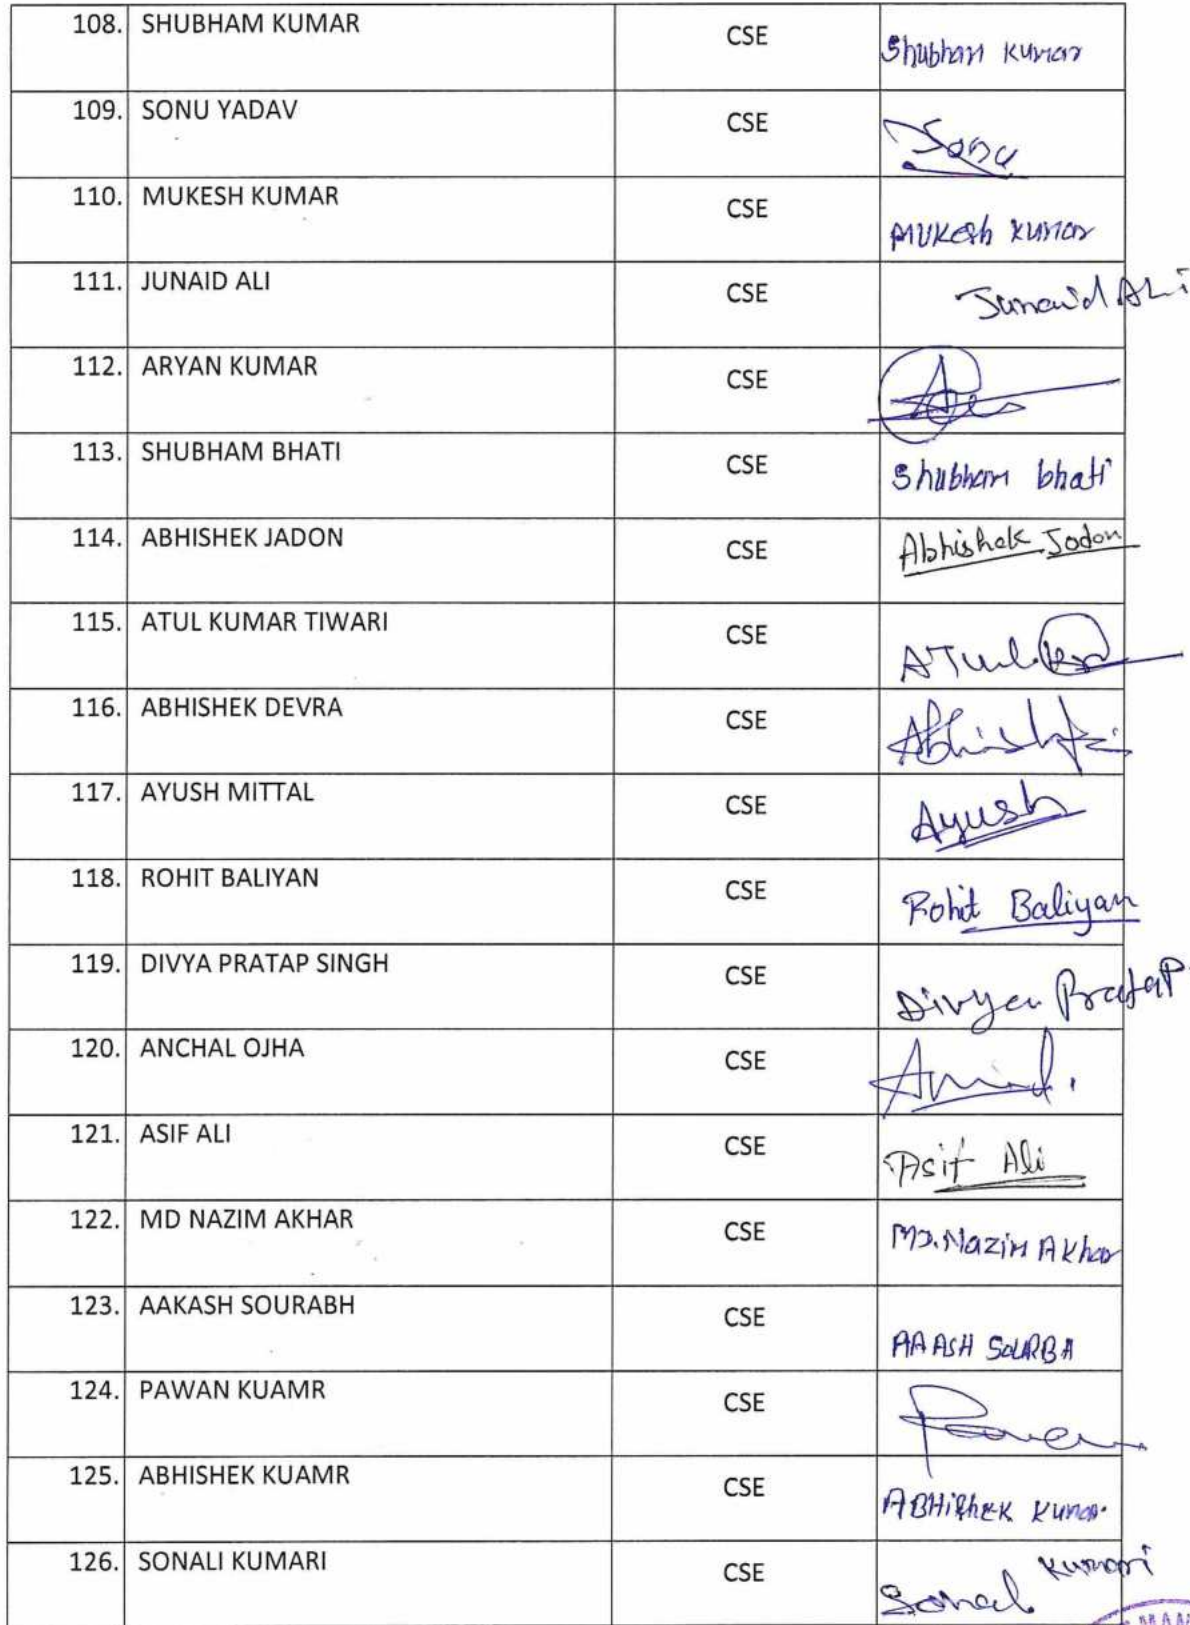 108. SHUBHAM KUMAR CSE Shubham Kumar
109. SONU YADAV CSE Sonu
110. MUKESH KUMAR CSE Mukesh Kumar
111. JUNAID ALI CSE Junaid ALi
112. ARYAN KUMAR CSE
113. SHUBHAM BHATI CSE Shubham bhati
114. ABHISHEK JADON CSE Abhishek Jadon
115. ATUL KUMAR TIWARI CSE ATul Kr
116. ABHISHEK DEVRA CSE Abhishek
117. AYUSH MITTAL CSE Ayush
118. ROHIT BALIYAN CSE Rohit Baliyan
119. DIVYA PRATAP SINGH CSE Divya Pratap
120. ANCHAL OJHA CSE
121. ASIF ALI CSE Asif Ali
122. MD NAZIM AKHAR CSE MD. Nazim Akhar
123. AAKASH SOURABH CSE AAASH SOURBA
124. PAWAN KUAMR CSE Pawan
125. ABHISHEK KUAMR CSE ABHishEK Kumar
126. SONALI KUMARI CSE Sonal Kumari